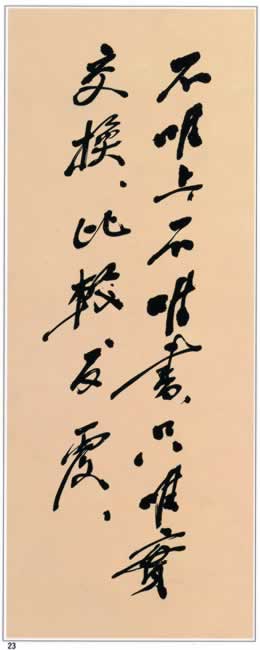 不唯上不唯书、只唯实
交换、比较、反复、
23